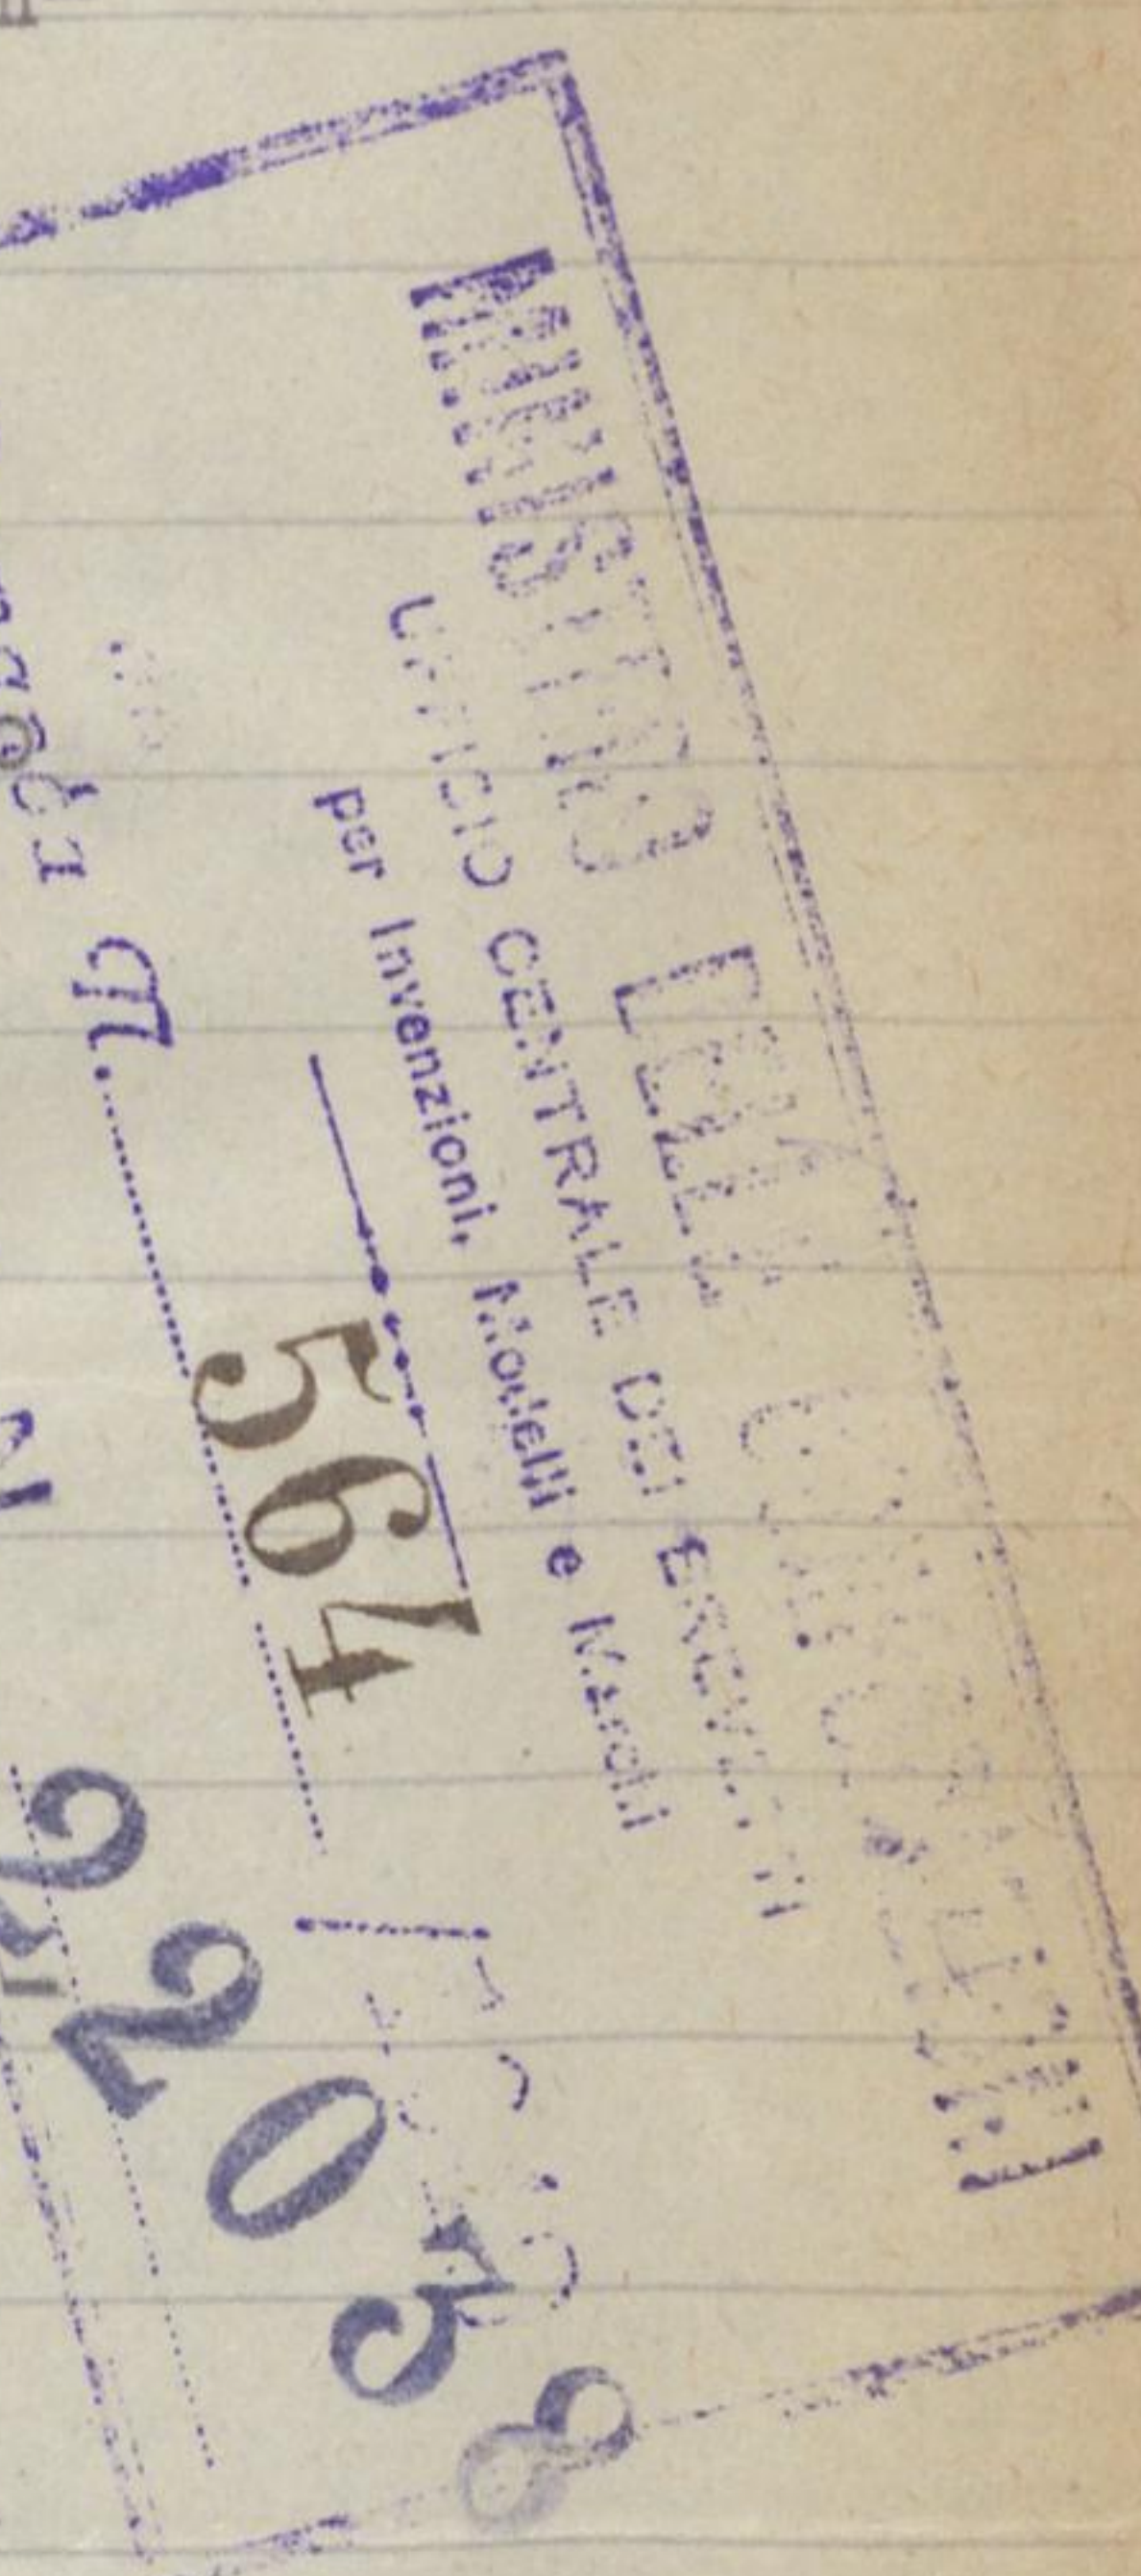 MINISTERO DELLE CORPORAZIONI
UFFICIO CENTRALE DEI BREVETTI
per Invenzioni, Modelli e Marchi
N. 564
22038